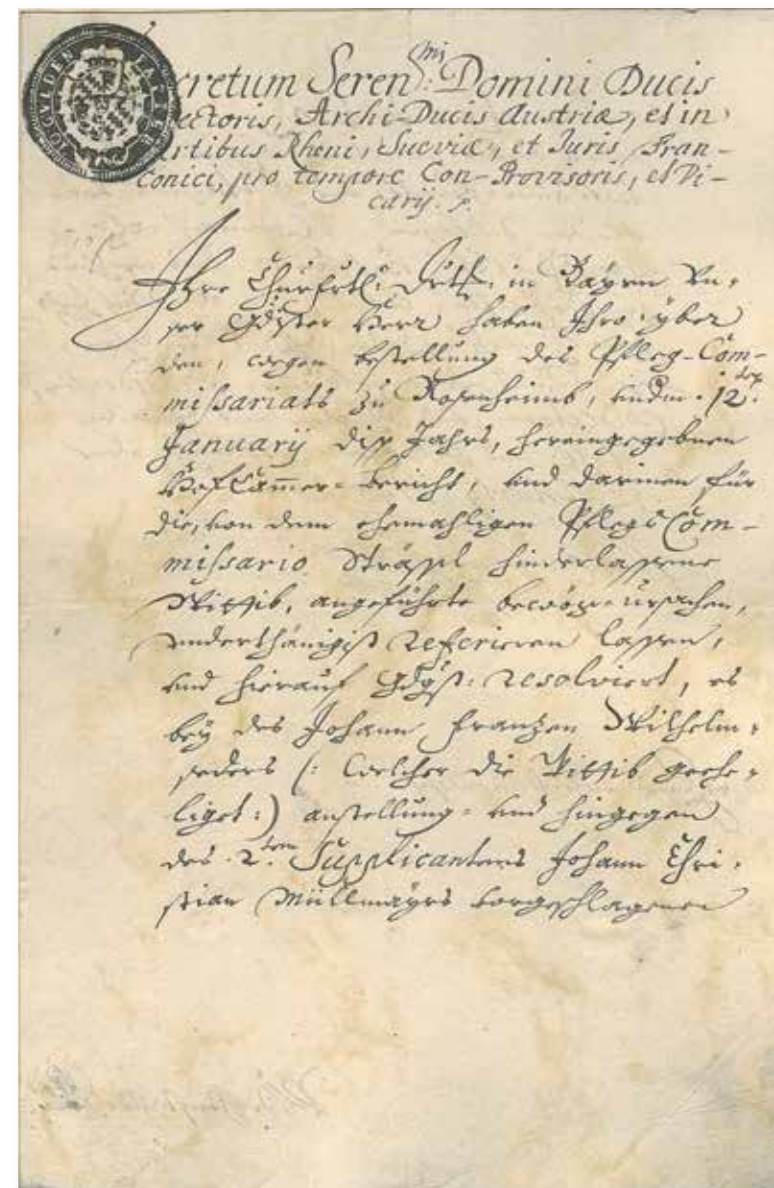 Decretum Seren:mi Domini Ducis
Electoris, Archi-Ducis Austriæ, et in
Partibus Rheni, Sueviæ, et Juris Fran-
conici, pro tempore Con-Provisoris, et Vi-
carij. p.
Ihre Churfrtl: Drtl: in Bayrn Un-
ser Gdigster Herr haben Ihro yber
den, wegen bestellung des Pfleg-Com-
missariats zu Rosenheimb, underm 12ten
January diß Jahrs, hereingegebnen
HofCammer-Bericht, und darinen für
die, von dem ehemahligen PflegsCom-
missario Sträxl hinderlassene
Wittib, angeführte ursachen,
underthänigist referieren lassen,
und hierauf Gdigst: resolviert, es
bey des Johann Franzen Wilhelm-
seders (: welcher die Wittib gehe-
liget :) anstellung- und hingegen
des 2ten Supplicantens Johann Chri-
stian Müllmayrs vorgeschlagenen